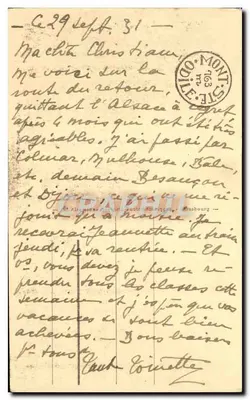 - Ce 29 sept. 31 -
Ma chère Christiane,
Me voici sur la
route du retour,
quittant l'Alsace à regret
après 4 mois qui ont été très
agréables. J'ai passé par
Colmar, Mulhouse, Bâle,
etc, demain Besançon
et Dijon
Je
recevrai Jeannette au train
jeudi, sa rentrée. Et
vs, vous devez je pense re-
prendre tous les classes cette
semaine et j'espère que vos
vacances se sont bien
achevées. - Bons baisers
pr tous
Tante Toinette
MONT-STE-ODILE
763 m
CPAPHIL